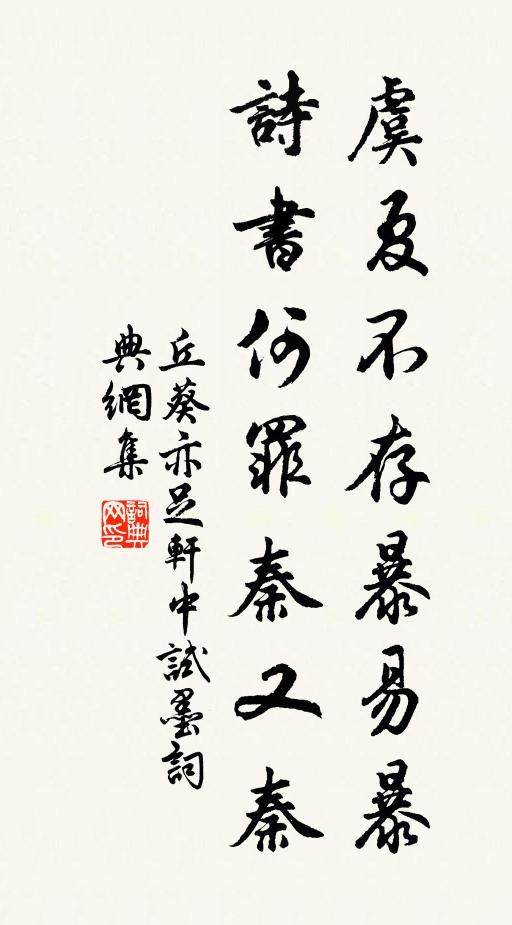 虞夏不存暴易暴
詩書何罪秦又秦
丘葵亦足軒中試墨詞
典網集
詞典网印